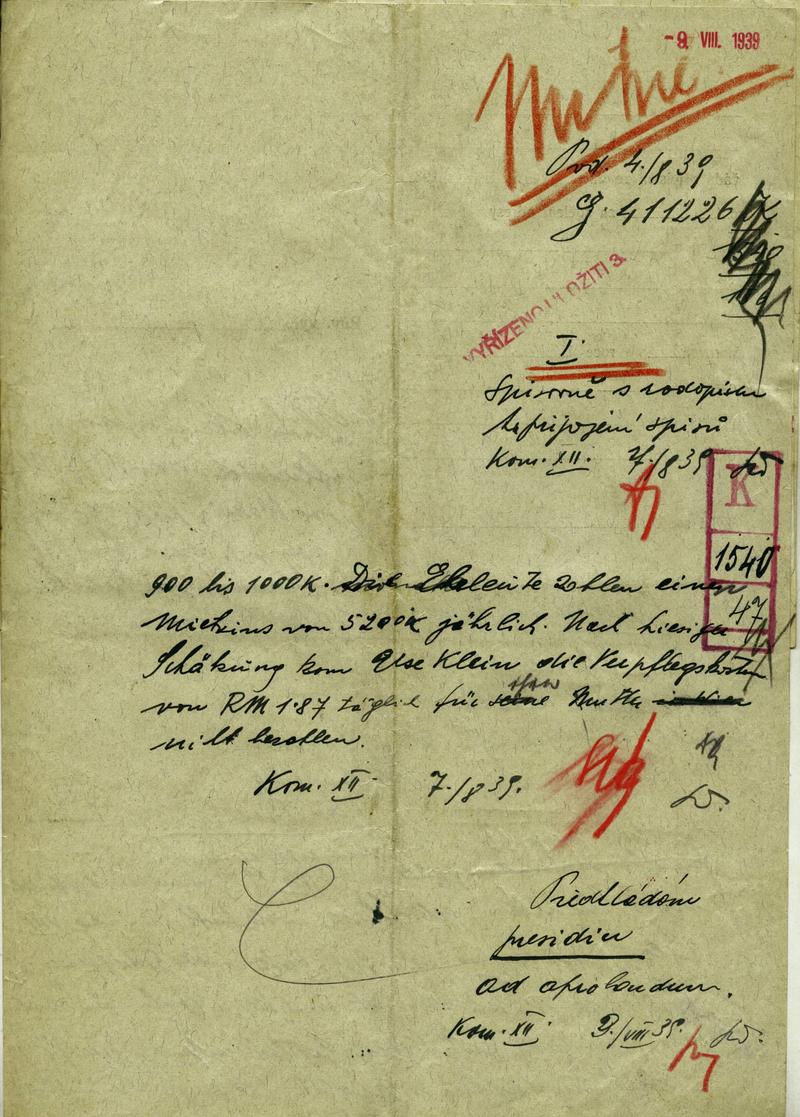 - 9. VIII. 1939
Pod. 4./8 39
čj. 411226
VYŘÍZENO ULOŽITI 3.
I.
Spisovně s rodopisem
k připojení spisů
Kom. XII. 7./8 39
K
1540
47
900 bis 1000 K. Eheleute zahlen einen
Mietzins von 5200 K jährlich. Nach hiesiger
Schätzung kann Else Klein die Verpflegskosten
von RM 1·87 täglich für seine Mutter
nicht bezahlen.
Kom. XII. 7./8 39.
Předkládám
presidiu
ad aprobandum.
Kom. XII. 9./VIII 39.